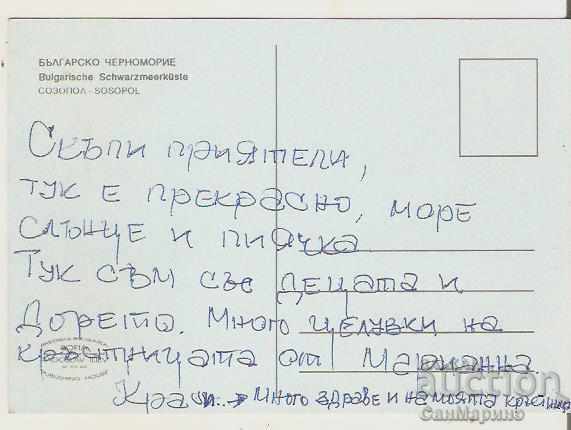 БЪЛГАРСКО ЧЕРНОМОРИЕ
Bulgarische Schwarzmeerküste
СОЗОПОЛ - SOSOPOL
Скъпи приятели,
тук е прекрасно, море
слънце и пиячка
Тук съм със децата и
Дорето. Много целувки на
кръстницата от Марианна.
Краси... → Много здраве и на моята кръстница
SOFIA
PUBLISHING HOUSE
auction
СанМарино